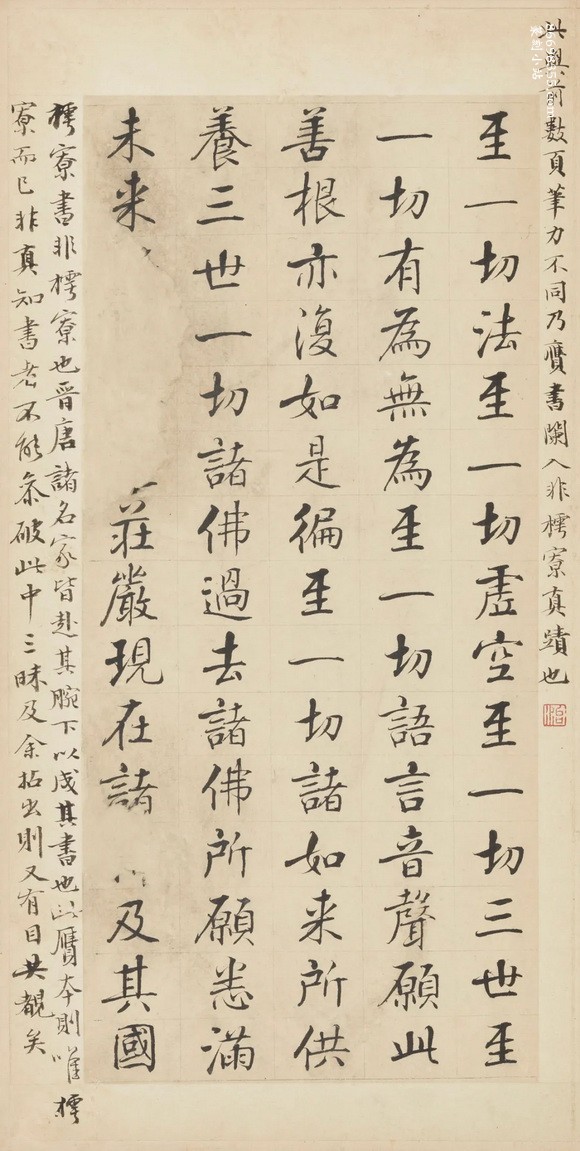 此與前數頁筆力不同乃贗書闌入非樗寮真蹟也
至一切法至一切虛空至一切三世至
一切有為無為至一切語言音聲願此
善根亦復如是徧至一切諸如来所供
養三世一切諸佛過去諸佛所願悉滿
未来莊嚴現在諸及其國
樗寮書非樗寮也晉唐諸名家皆赴其腕下以成其書也此贗本則唯樗
寮而已非真知書者不能叅破此中三昧及余拈出則又有目共覩矣